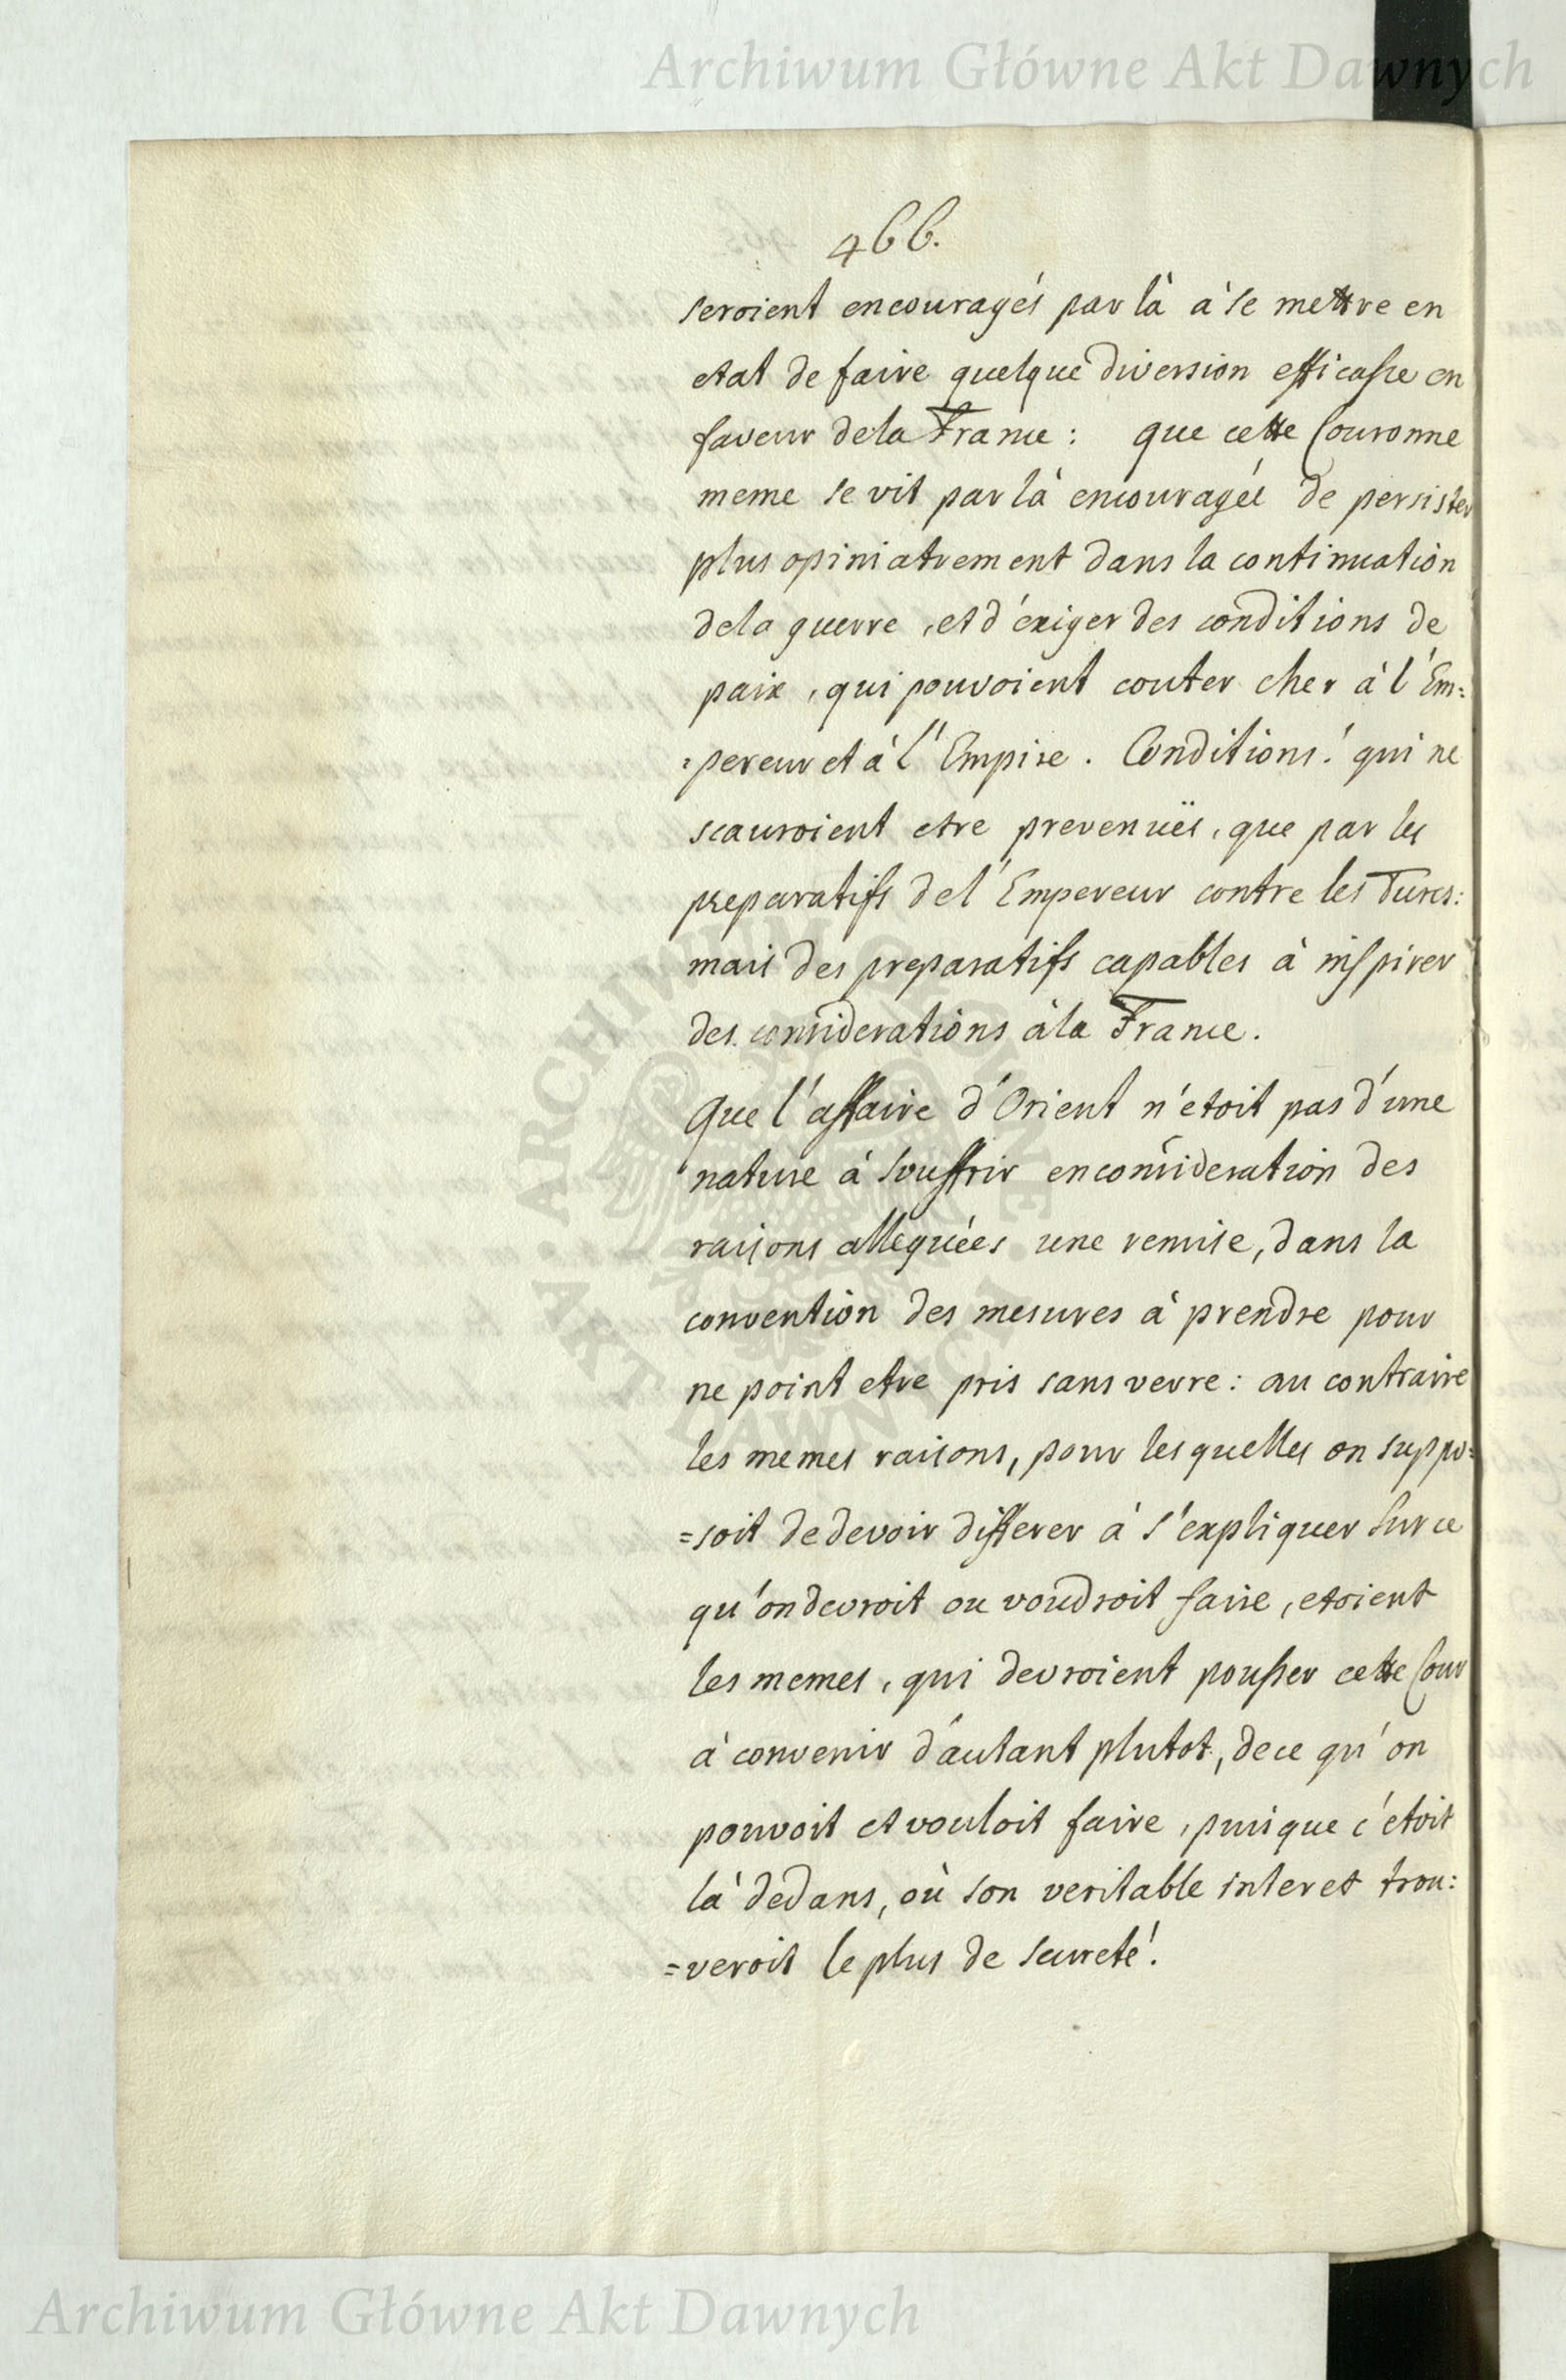 Archiwum Główne Akt Dawnych
466.
seroient encouragés par là à se mettre en
etat de faire quelque diversion efficasse en
faveur de la France : que cette Couronne
meme se vit par là encouragée de persister
plus opiniatrement dans la continuation
de la guerre, et d'éxiger des conditions de
paix, qui pouvoient couter cher à l'Em:
=pereur et à l'Empire. Conditions! qui ne
scauroient etre prevenuës, que par les
preparatifs de l'Empereur contre les Turcs:
mais des preparatifs capables à inspirer
des considerations à la France.
Que l'affaire d'Orient n'etoit pas d'une
nature à souffrir en consideration des
raisons alleguées une remise, dans la
convention des mesures à prendre pour
ne point etre pris sans verre : au contraire
les memes raisons, pour lesquelles on suppo=
=soit de devoir differer à s'expliquer sur ce
qu'on devroit ou voudroit faire, etoient
les memes, qui devroient pousser cette Cour
à convenir d'autant plutot, de ce qu'on
pouvoit et vouloit faire, puisque c'etoit
là dedans, où son veritable interet trou:
=veroit le plus de seureté!
ARCHIWUM GŁÓWNE AKT DAWNYCH
Archiwum Główne Akt Dawnych